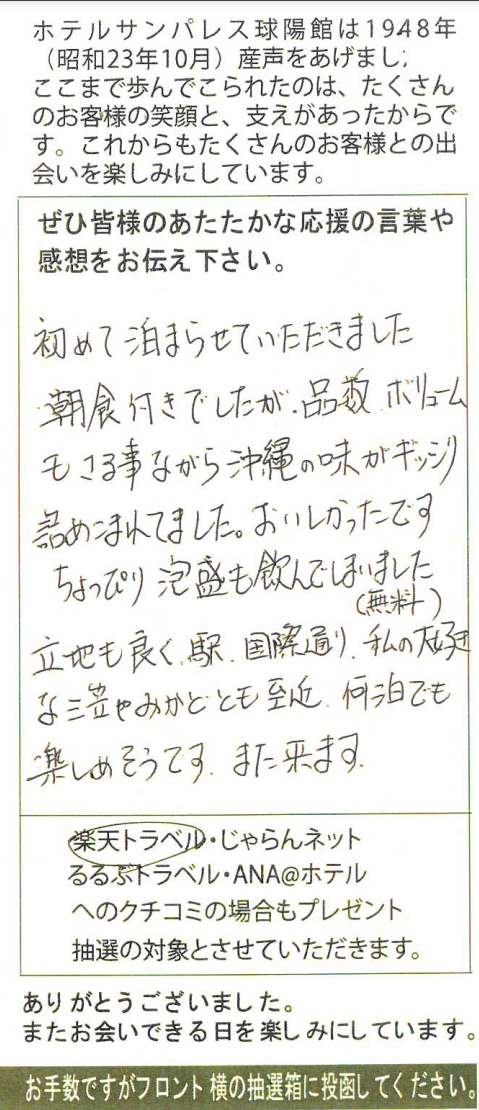 ホテルサンパレス球陽館は1948年
（昭和23年10月）産声をあげまし
ここまで歩んでこられたのは、たくさん
のお客様の笑顔と、支えがあったからで
す。これからもたくさんのお客様との出
会いを楽しみにしています。
ぜひ皆様のあたたかな応援の言葉や
感想をお伝え下さい。
初めて泊まらせていただきました
朝食付きでしたが、品数、ボリューム
もさる事ながら沖縄の味がギッシリ
詰めこまれてました。おいしかったです
ちょっぴり泡盛も飲んでしまいました
（無料）
立地も良く、駅、国際通り、私の大好き
な三笠やみかどとも至近、何泊でも
楽しめそうです、また来ます。
楽天トラベル・じゃらんネット
るるぶトラベル・ANA@ホテル
へのクチコミの場合もプレゼント
抽選の対象とさせていただきます。
ありがとうございました。
またお会いできる日を楽しみにしています。
お手数ですがフロント横の抽選箱に投函してください。